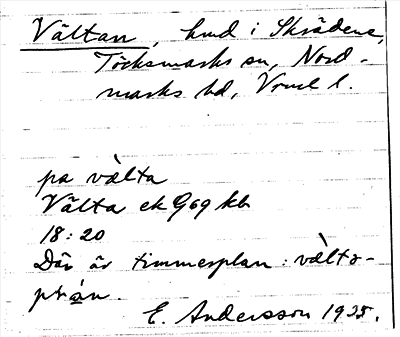 Vältan, hmd i Skrädene,
Töcksmarks sn, Nord-
marks hd, Vrml l.
på vä̀lta
Välta ek G69 kb
18:20
Där är timmerplan: vä̀lta-
plɑ̀n.
E. Andersson 1925.